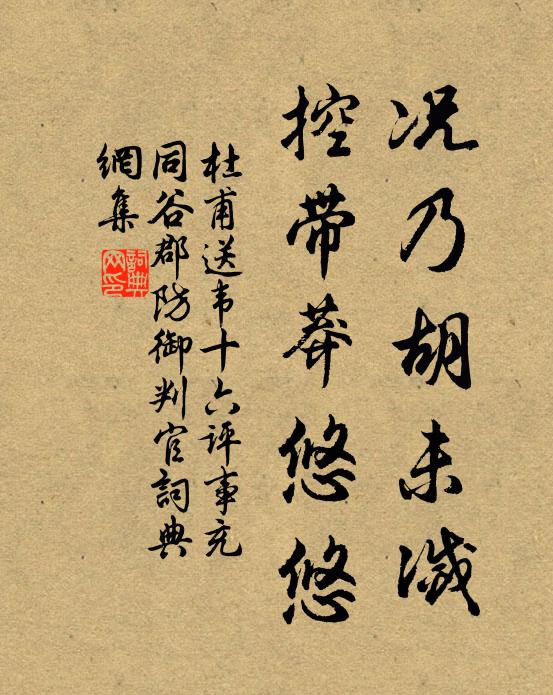 况乃胡未滅
控带莽悠悠
杜甫送韦十六评事充
同谷郡防御判官詞典
網集
詞典网印